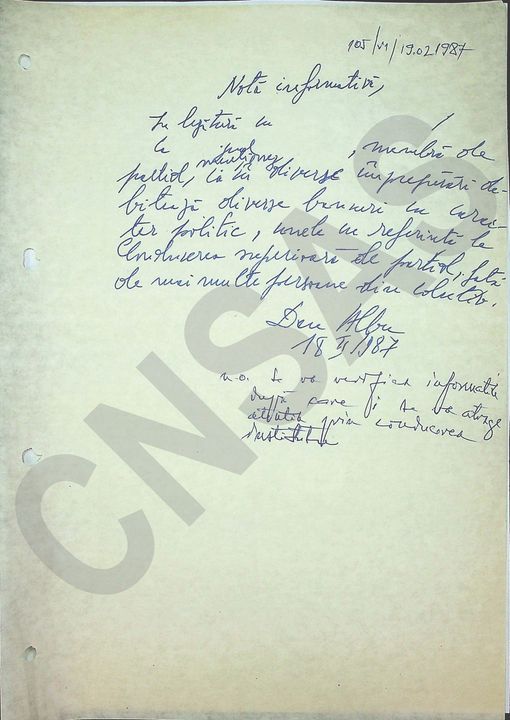 105/VI/19.02.1987
Notă informativă,
În legătură cu /
la , membră de
pot menționez
partid, că în diverse împrejurări de-
bitează diverse bancuri cu carac-
ter politic, unele cu referință la
Conducerea superioară de partid, față
de mai multe persoane din colectiv.
Dan Albu
18 II 1987
n.o. Se va verifica informația
după care i se va atrage
atenția prin conducerea
institutului
CNSAS